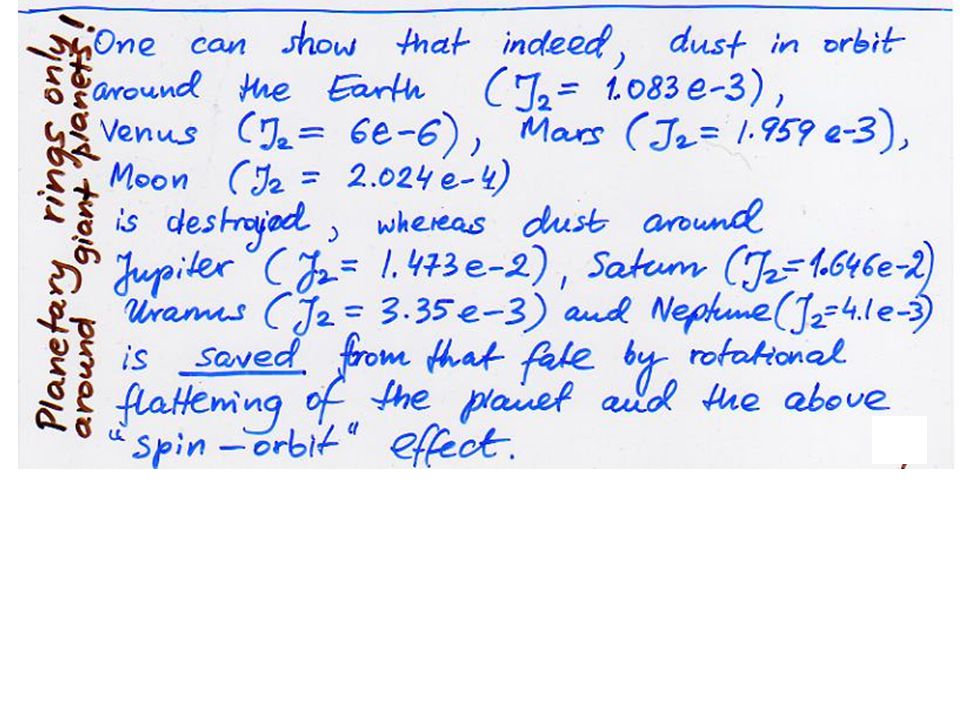 Planetary rings only
around giant planets!
One can show that indeed, dust in orbit
around the Earth (J2 = 1.083 e-3),
Venus (J2 = 6e-6), Mars (J2 = 1.959 e-3),
Moon (J2 = 2.024 e-4)
is destroyed, whereas dust around
Jupiter (J2 = 1.473 e-2), Saturn (J2=1.646e-2)
Uranus (J2 = 3.35 e-3) and Neptune (J2=4.1e-3)
is saved from that fate by rotational
flattening of the planet and the above
"spin-orbit" effect.